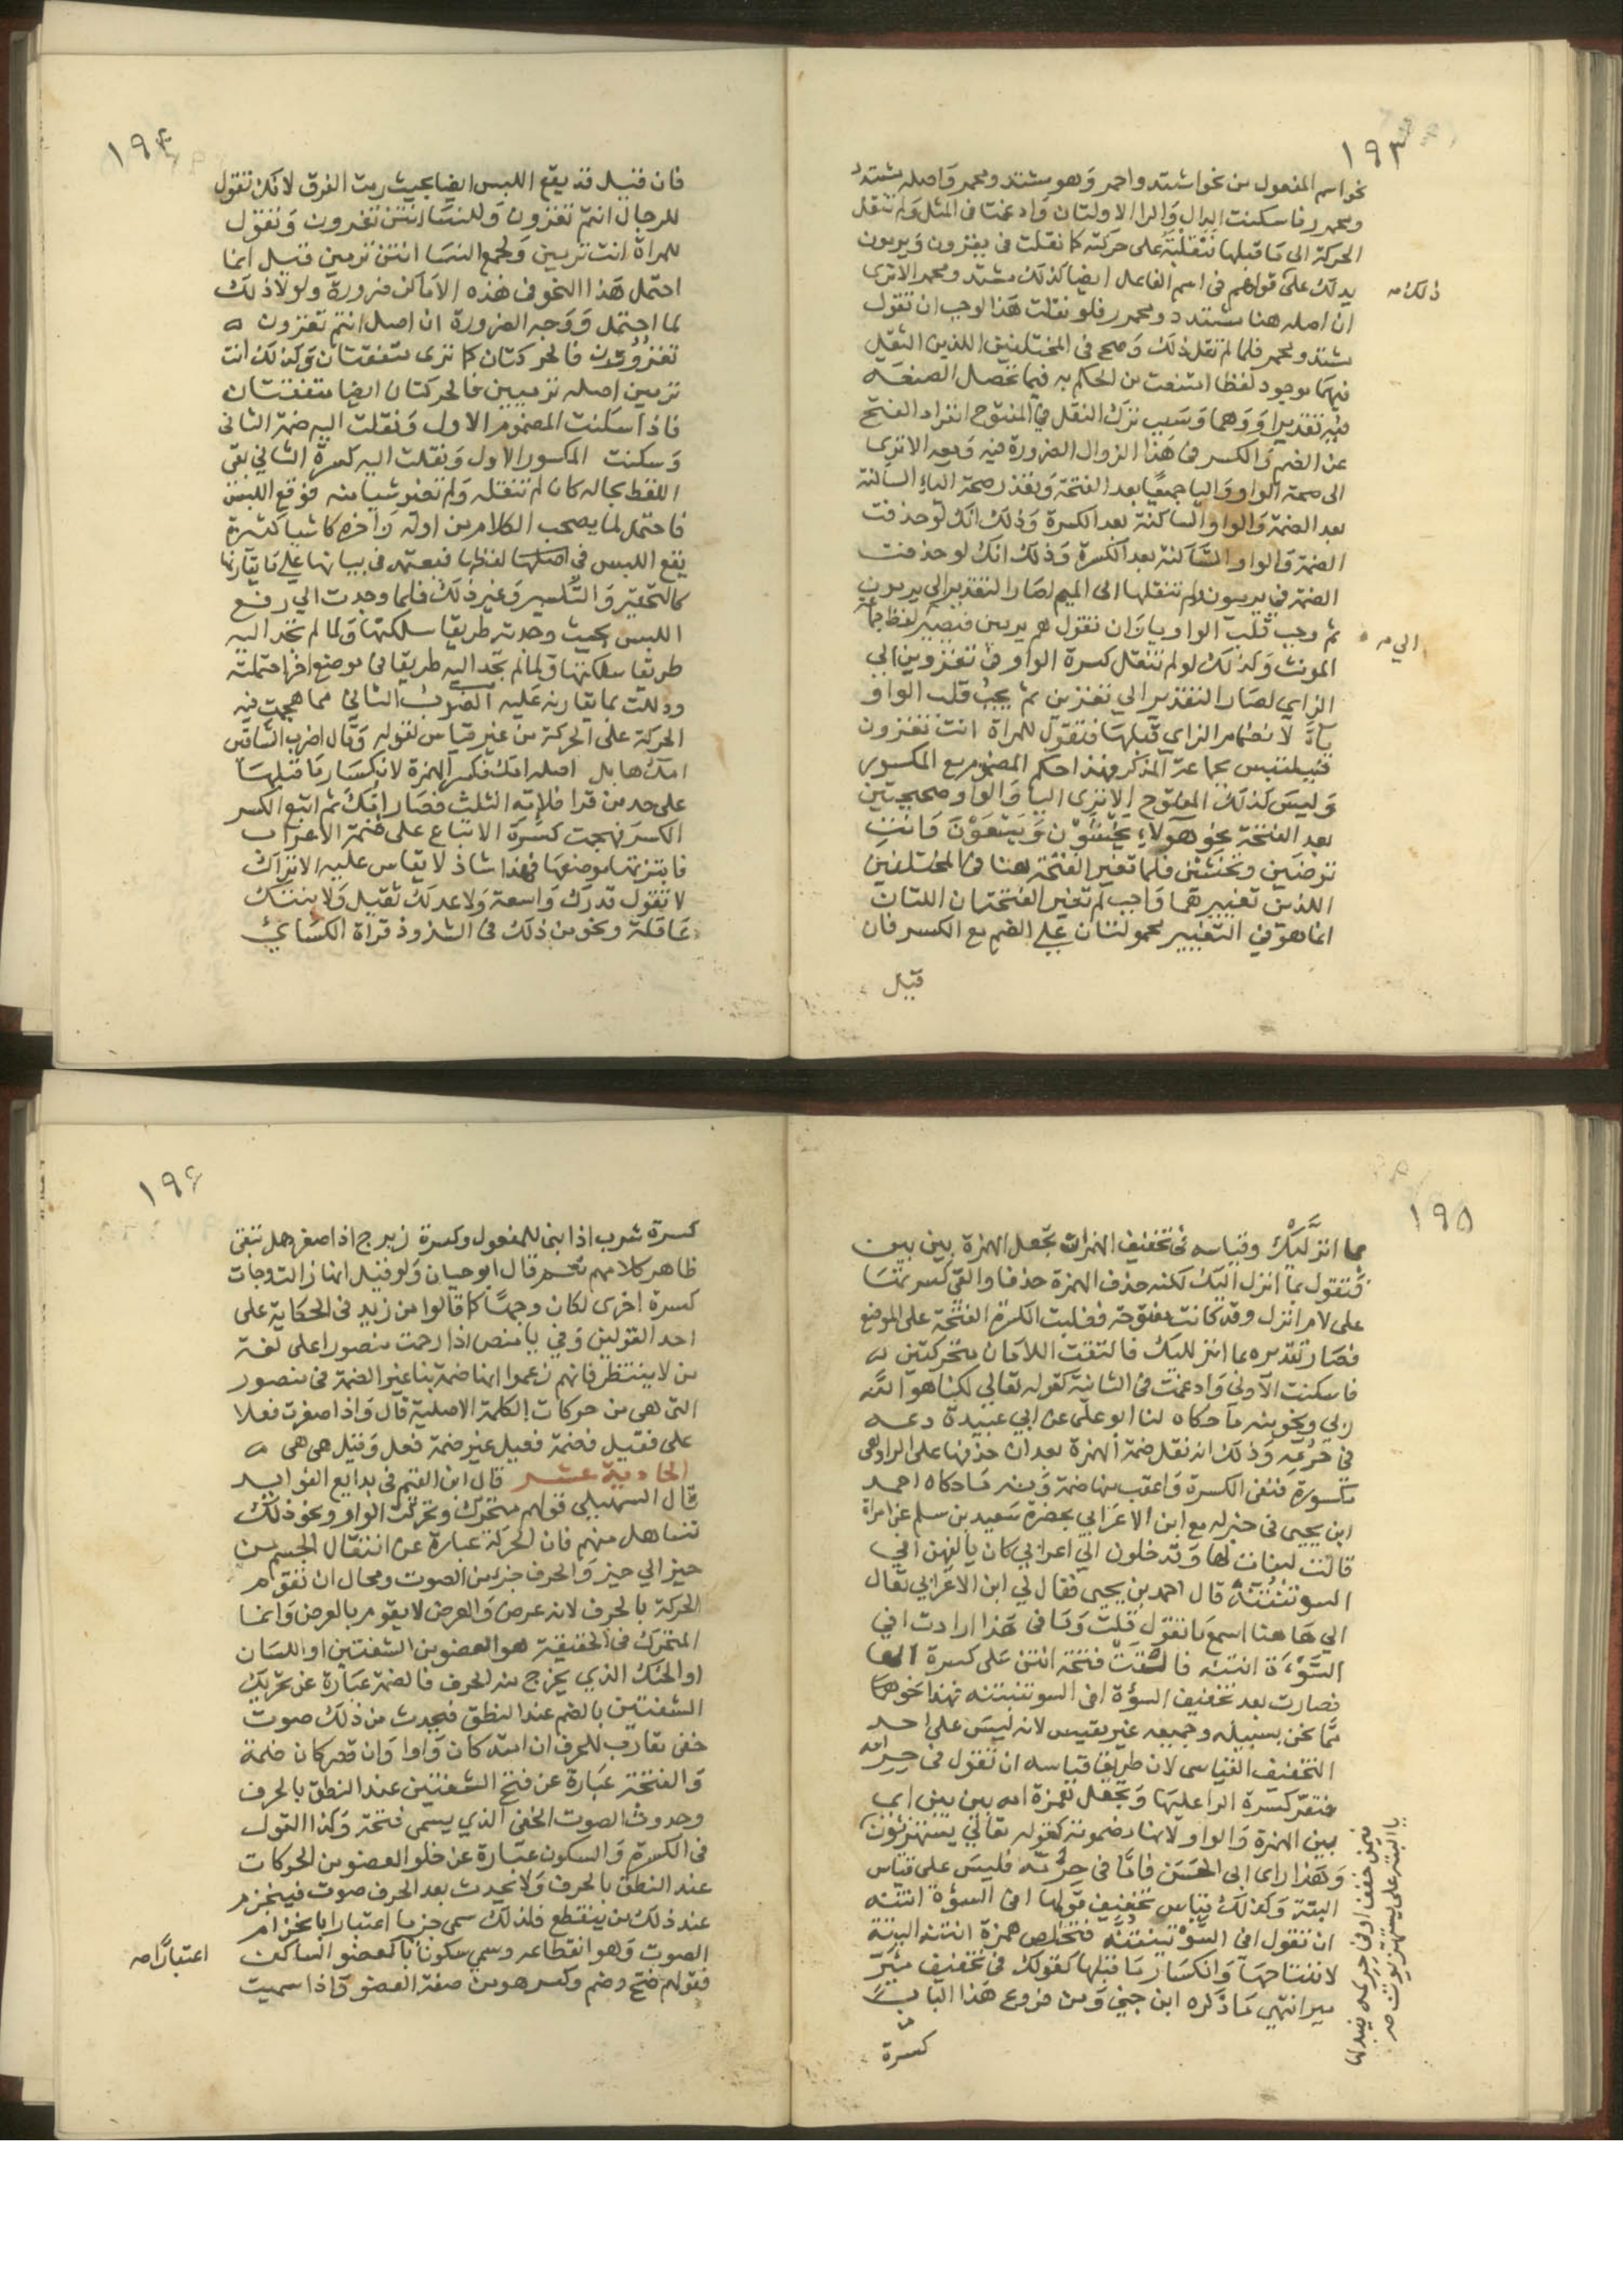 ١٩٣
نحو اسم المفعول من نحو اشتد واحمر وهو مشتد ومحمر واصله مشتدد
ومحمرر فاسكنت الدال والرا الاولتان وادغمتا في المثل ولم تنقل
الحركة الى ما قبلها فتغلبه على حركته كما نقلت في يغزون ويرمون
يدلك على قولهم في اسم الفاعل ايضا كذلك مشتد ومحمر الا ترى
ذلك صه
ان اصله هنا مشتدد ومحمرر فلو نقلت هذا لوجب ان تقول
مشتد ومحمر فلما لم تنقل ذلك وصح في المختلفين اللذين النقل
فيهما موجود لفظا امتنعت من الحكم به فيما تحصل الصنعه
فيه تقديرا ووهما وسبب ترك النقل في المفتوح انفراد الفتح
عن الضم والكسر في هذا الزوال الضرورة فيه ومعه الا ترى
الى صحة الواو واليا جميعا بعد الفتحة وتعذر صحة الياء الساكنة
بعد الضمة والواو الساكنة بعد الكسرة وذلك انك لو حذفت
الضمة والواو الساكنة بعد الكسرة وذلك انك لو حذفت
الضمة في يرميون ولم تنقلها الى الميم لصار التقدير الى يرمون
ثم وجب قلب الواو يا وان تقول هم يرمين فيصير لفظ جماعة
الى صه
المونث وكذلك لو لم تنقل كسرة الواو في تغزوين الى
الزاي لصار التقدير الى تغزين ثم يجب قلب الواو
ياءً لانضمام الزاي قبلها فتقول للمراة انت تغزون
فيلتبس بجماعة المذكر فهذا حكم المضموم مع المكسور
وليس كذلك المفتوح الا ترى اليا والواو صحيحتين
بعد الفتحة نحو هولاء يخشون ويسعون وانت
ترضين وتخشين فلما تغير الفتحة هنا في المختلفين
اللذين تغييرهما واجب لم تغير الفتحتان اللتان
انما هو في التغيير محمولتان على الضم مع الكسر فان
قيل
١٩٤
فان قيل قد يقع اللبس ايضا بحيث رمت الفرق لانك تقول
للرجال انتم تغزون وللنسا انتن تغزون وتقول
للمراة انت ترمين ولجمع النسا انتن ترمين قيل انما
احتمل هذا النحو في هذه الاماكن ضرورة ولولا ذلك
لما احتمل ووجه الضرورة ان اصل انتم تغزون
تغزوون فالحركتان كما ترى متفقتان وكذلك انت
ترمين اصله ترميين فالحركتان ايضا متفقتان
فاذا اسكنت المضموم الاول ونقلت اليه ضمة الثاني
وسكنت المكسور الاول ونقلت اليه كسرة الثاني بقي
اللفظ بحاله كان لم تنقله ولم تغير شيا منه فوقع اللبس
فاحتمل لما يصحب الكلام من اوله واخره كاشيا كثيرة
يقع اللبس في اصلها لفظها فيعتمد في بيانها على ما يقارنها
كالتحقير والتكسير وغير ذلك فلما وجدت الى رفع
اللبس بحيث وجدته طريقا سلكتها ولما لم تجد اليه
طريقا سلكتها ولما لم تجد اليه طريقا في موضع اخر احتملته
ودللت بما يقارنه عليه الضرب الثاني مما هجمت فيه
الحركة على الحركة من غير قياس كقوله وقال اضرب الساقين
امك هابل اصله امك فكسر الهمزة لانكسار ما قبلها
على حد من قرا فلامه الثلث فصار امك ثم اتبع الكسر
الكسر فهجمت كسرة الاتباع على ضمة الاعراب
فابتزتها موضعها فهذا شاذ لا يقاس عليه الا تراك
لا تقول قدرك واسعة ولا عدلك ثقيل ولا بنتك
عاقلة ونحو من ذلك في الشذوذ قراة الكساي
١٩٥
بما انزليك وقياسه في تخفيف الهمزات تجعل الهمزة بين بين
فتقول بما انزل اليك لكنه حذف الهمزة حذفا والقى كسرتها
على لام انزل وقد كانت مفتوحة فغلبت الكسرة الفتحة على الموضع
فصار تقديره بما انزلليك فالتقت اللامان متحركتين
فاسكنت الاولى وادغمت في الثانية كقوله تعالى لكنا هو الله
ربي ونحو منه ما حكاه لنا ابو علي عن ابي عبيدة دعه
في حرمه وذلك انه نقل ضمة الهمزة بعد ان حذفها على الرا وهي
مكسورة فنفى الكسرة واعقب منها ضمة ومنه ما حكاه احمد
ابن يحيى في خبر له مع ابن الاعرابي بحضرة سعيد بن سلم عن امراة
قالت لبنات لها وقد خلون الى اعرابي كان يالفهن افي
السوتنتنه قال احمد بن يحيى فقال لي ابن الاعرابي تعال
الى هاهنا اسمع ما تقول قلت وما في هذا ارادت افي
السوءة انتنه فالقت فتحة انتن على كسرة الها
فصارت بعد تخفيف السوءة افي السوتنتنه فهذا نحو
مما نحن بسبيله وجميعه غير مقيس لانه ليس على احد
التخفيف القياسي لان طريق قياسه ان تقول في حر امه
فتقر كسرة الرا عليها وتجعل همزة امه بين بين اي
بين الهمزة والواو لانها مضمومة كقوله تعالى يستهزئون
يمن خفف او في حر يمه فيبدلها
يا البتة على يستهزيون صه
وهذا راى ابي الحسن فاما في حر مه فليس على قياس
البتة وكذلك قياس تخفيف قولها افي السوءة انتنه
ان تقول افي السوءتينتنه فتخلص همزة انتنه البتة
لانفتاحها وانكسار ما قبلها كقولك في تخفيف مئر
مير انتهى ما ذكره ابن جني ومن فروع هذا الباب
كسرة
١٩٦
كسرة شرب اذا بني للمفعول وكسرة زبرج اذا صغر هل تبقى
ظاهر كلامهم نعم قال ابو حيان ولو قيل انها زالت وجات
كسرة اخرى لكان وجها كما قالوا من زيد في الحكاية على
احد القولين وفي يا منص اذا رحمت منصورا على لغة
من لا ينتظر فانهم زعموا انها ضمة بنا غير الضمة في منصور
التي هي من حركات الكلمة الاصلية قال واذا صغرت فعلا
على فعيل فضمة فعيل غير ضمة فعل وقيل هي هي
الحادية عشر قال ابن القيم في بدايع الفوايد
قال السهيلي قولهم متحرك وتحركت الواو ونحو ذلك
تساهل منهم فان الحركة عبارة عن انتقال الجسم من
حيز الى حيز والحرف جزء من الصوت ومحال ان تقوم
الحركة بالحرف لانه عرض والعرض لا يقوم بالعرض وانما
المتحرك في الحقيقة هو العضو من الشفتين او اللسان
او الحنك الذي يخرج منه الحرف فالضمة عبارة عن تحريك
الشفتين بالضم عند النطق فيحدث من ذلك صوت
خفي تقارب للحرف ان امتد كان واوا وان قصر كان ضمة
والفتحة عبارة عن فتح الشفتين عند النطق بالحرف
وحدوث الصوت الخفي الذي يسمى فتحة وكذا القول
في الكسرة والسكون عبارة عن خلو العضو من الحركات
عند النطق بالحرف ولا يحدث بعد الحرف صوت فينجزم
عند ذلك من ينقطع فلذلك سمي جزما اعتبارا بانجزام
الصوت وهو انقطاعه وسمي سكونا بالعضو الساكن
اعتبارًا صه
فقولهم فتح وضم وكسر هو من صفة العضو واذا سميت